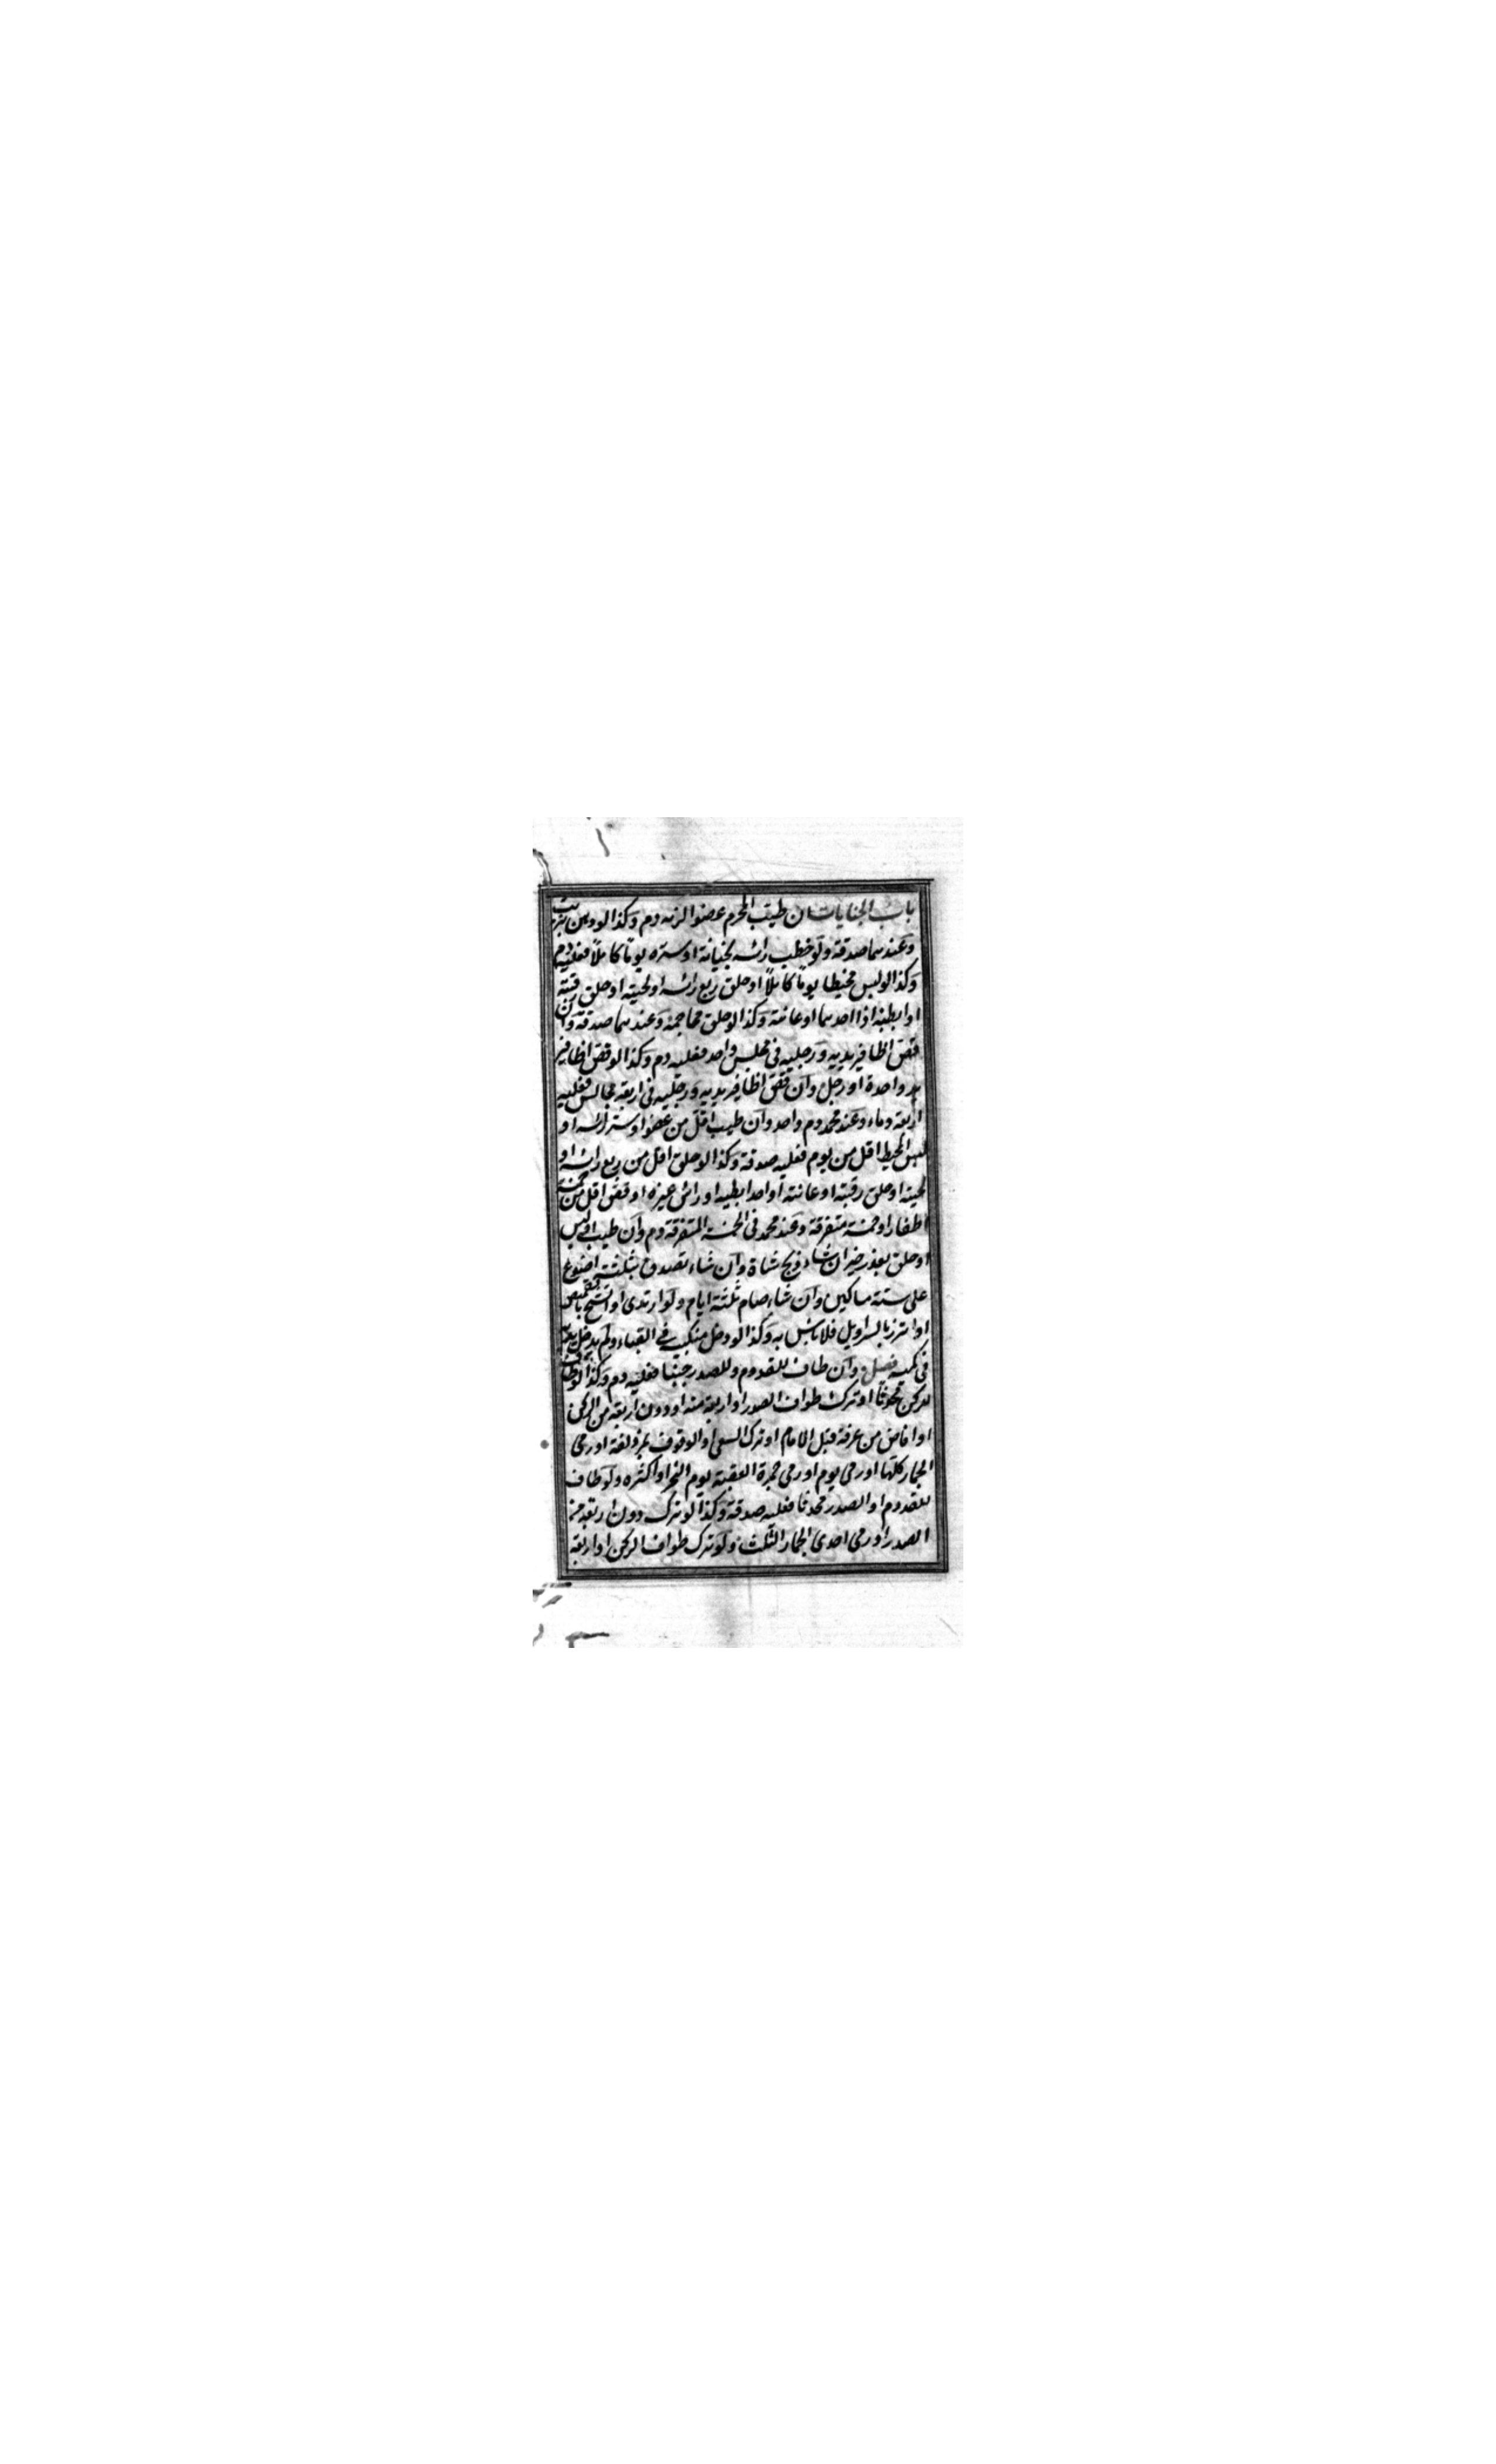 باب الجنايات ان طيب المحرم عضوا لزمه دم وكذا لو دهن بزيت
وعندهما صدقة ولو خضب رأسه بحناء او ستره يوما كاملا فعليه دم
وكذا لو لبس مخيطا يوما كاملا او حلق ربع رأسه او لحيته او حلق رقبته
او ابطيه او احدهما او عانته وكذا لو حلق محاجمه وعندهما صدقة وان
قص اظافير يديه ورجليه في مجلس واحد فعليه دم وكذا لو قص اظافير
يد واحدة او رجل وان قص اظافير يديه ورجليه في اربعة مجالس فعليه
اربعة دماء وعند محمد دم واحد وان طيب اقل من عضو او ستر رأسه او
لبس المخيط اقل من يوم فعليه صدقة وكذا لو حلق اقل من ربع رأسه او
لحيته او حلق رقبته او عانته او احد ابطيه او رأس غيره او قص اقل من خمسة
اظفار او خمسة متفرقة وعند محمد في الخمسة المتفرقة دم وان طيب او لبس
او حلق بعذر خير ان شاء ذبح شاة وان شاء تصدق بثلثة اصوع
على ستة مساكين وان شاء صام ثلثة ايام ولو ارتدى او اتشح بالقميص
او اتزر بالسراويل فلا بأس به وكذا لو دخل منكبيه في القباء ولم يدخل يديه
في كميه فصل وان طاف للقدوم وللصدر جنبا فعليه دم وكذا لو طاف
للركن محدثا او ترك طواف الصدر او اربعة منه او دون اربعة من الركن
او افاض من عرفة قبل الامام او ترك السعي او الوقوف بمزدلفة او رمي
الجمار كلها او رمي يوم او رمي جمرة العقبة يوم النحر او اكثره ولو طاف
للقدوم او الصدر محدثا فعليه صدقة وكذا لو ترك دون اربعة من
الصدر او رمي احدى الجمار الثلث ولو ترك طواف الركن او اربعة